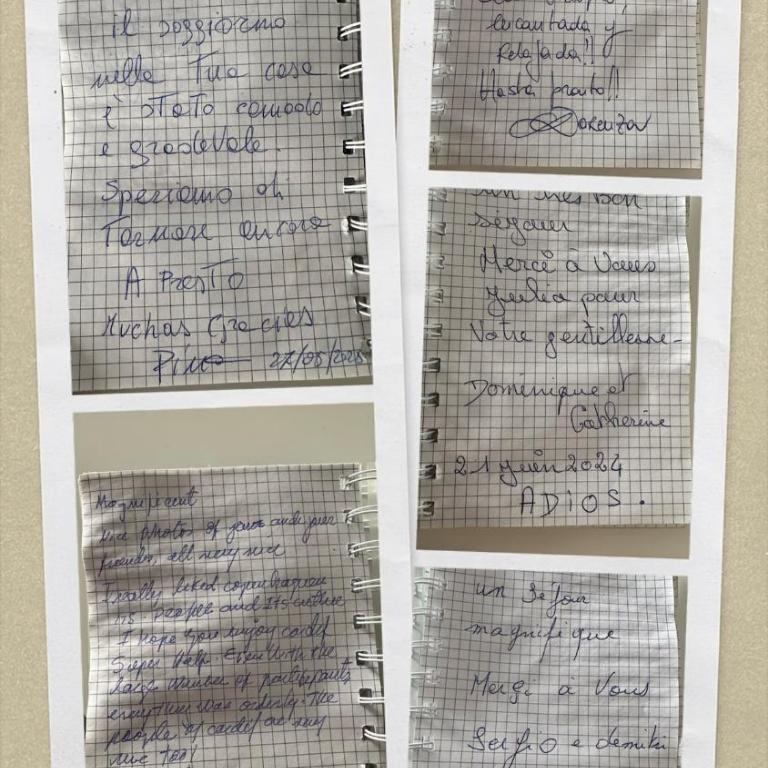 il soggiorno
nella Tua casa
è stato comodo
e gradevole.
Speriamo di
Tornare ancora
A PRESTO
Muchas Gracies
Pino 27/05/202
Magnificent
Nice photos of your and your
friends, all very nice
I really liked
its people and its culture
I hope you enjoy cardif
Super help. Even with the
large number of participants
everything was orderly. The
people of cardif are very
nice too!
encantada y
Relajada!!
Hasta pronto!!
Lorenza
un très bon
séjour
Merci à Vous
Julia pour
Votre gentillesse.
Dominique et
Catherine
21 juin 2024
ADIOS.
un séjour
magnifique
Merçi à Vous
Sergio e